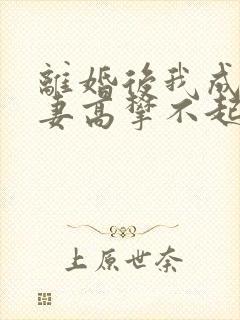 離婚後我成
妻高攀不起
上原世奈